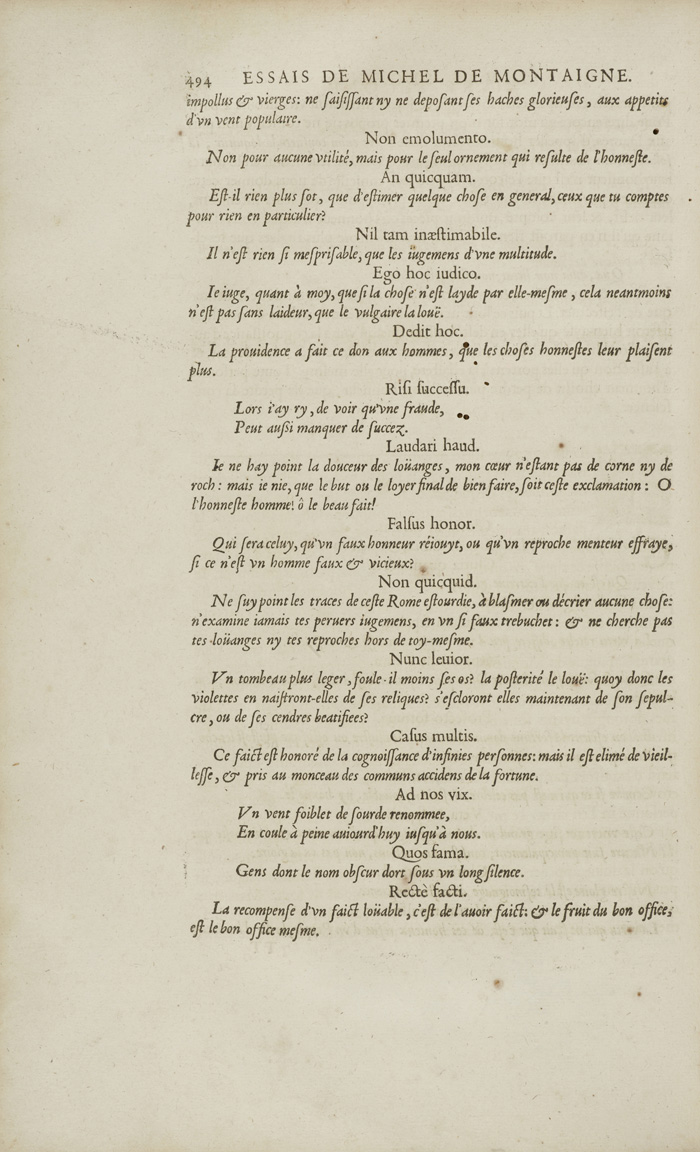 494 ESSAIS DE MICHEL DE MONTAIGNE.
impollus & vierges: ne ſaiſiſſant ny ne depoſant ſes haches glorieuſes, aux appetits
d'vn vent populaire.
Non emolumento.
Non pour aucune vtilité, mais pour le ſeul ornement qui reſulte de l'honneſte.
An quicquam.
Eſt-il rien plus ſot, que d'eſtimer quelque choſe en general, ceux que tu comptes
pour rien en particulier?
Nil tam inæſtimabile.
Il n'eſt rien ſi meſpriſable, que les iugemens d'vne multitude.
Ego hoc iudico.
Ie iuge, quant à moy, que ſi la choſe n'eſt layde par elle-meſme, cela neantmoins
n'eſt pas ſans laideur, que le vulgaire la louë.
Dedit hoc.
La prouidence a fait ce don aux hommes, que les choſes honneſtes leur plaiſent
plus.
Riſi ſucceſſu.
Lors i'ay ry, de voir qu'vne fraude,
Peut auſſi manquer de ſuccez.
Laudari haud.
Ie ne hay point la douceur des loüanges, mon cœur n'eſtant pas de corne ny de
roch: mais ie nie, que le but ou le loyer final de bien faire, ſoit ceſte exclamation: O
l'honneſte homme! ô le beau fait!
Falſus honor.
Qui ſera celuy, qu'vn faux honneur réiouyt, ou qu'vn reproche menteur effraye,
ſi ce n'eſt vn homme faux & vicieux?
Non quicquid.
Ne ſuy point les traces de ceſte Rome eſtourdie, à blaſmer ou décrier aucune choſe:
n'examine iamais tes peruers iugemens, en vn ſi faux trebuchet: & ne cherche pas
tes loüanges ny tes reproches hors de toy-meſme.
Nunc leuior.
Vn tombeau plus leger, foule-il moins ſes os? la poſterité le louë: quoy donc les
violettes en naiſtront-elles de ſes reliques? s'eſcloront elles maintenant de ſon ſepul-
cre, ou de ſes cendres beatifiees?
Caſus multis.
Ce faict eſt honoré de la cognoiſſance d'infinies perſonnes: mais il eſt elimé de vieil-
leſſe, & pris au monceau des communs accidens de la fortune.
Ad nos vix.
Vn vent foiblet de ſourde renommee,
En coule à peine auiourd'huy iuſqu'à nous.
Quos fama.
Gens dont le nom obſcur dort ſous vn long ſilence.
Rectè facti.
La recompenſe d'vn faict loüable, c'eſt de l'auoir faict: & le fruit du bon office,
eſt le bon office meſme.